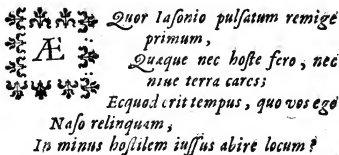 ÆQuor Iaſonio pulſatum remige
primum,
Quæque nec hoſte fero, nec
niue terra cares;
Ecquod erit tempus, quo vos ego
Naſo relinquam,
In minus hoſtilem iuſſus abire locum?